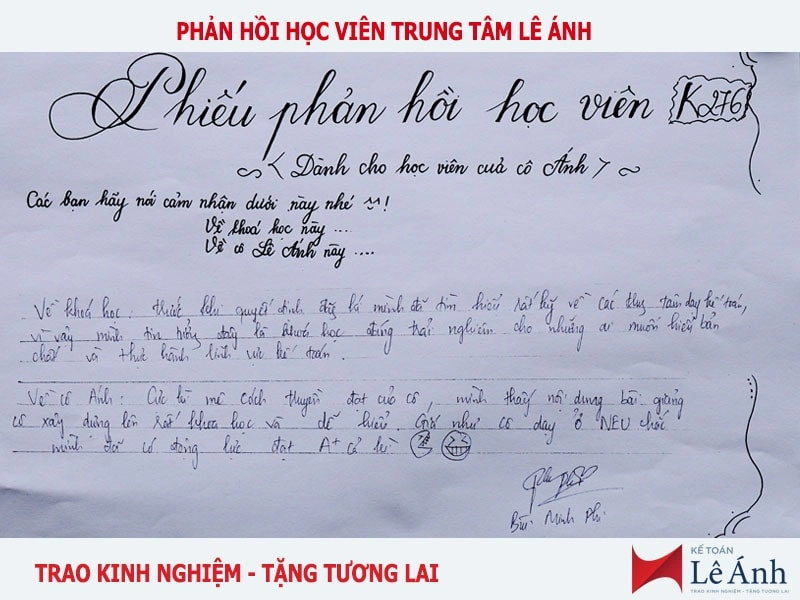 PHẢN HỒI HỌC VIÊN TRUNG TÂM LÊ ÁNH
Phiếu phản hồi học viên K276
Dành cho học viên cuả cô Ánh
Các bạn hãy nói cảm nhận dưới này nhé ^^!
Về khoá học này ....
Về cô Lê Ánh này ....
Về khoá học: trước khi quyết định đăng kí mình đã tìm hiểu rất kỹ về các trung tâm dạy kế toán,
vì vậy mình tin tưởng đây là khoá học đáng trải nghiệm cho những ai muốn hiểu bản
chất và thực hành lĩnh vực kế toán.
Về cô Ánh: Cực kì mê cách truyền đạt của cô, mình thấy nội dung bài giảng
cô xây dựng lên rất khoa học và dễ hiểu. Giá như cô dạy ở NEU chắc
mình đã có động lực đạt A+ cả kì
Bùi Minh Phi
TRAO KINH NGHIỆM - TẶNG TƯƠNG LAI
KẾ TOÁN
Lê Ánh
TRAO KINH NGHIỆM - TẶNG TƯƠNG LAI